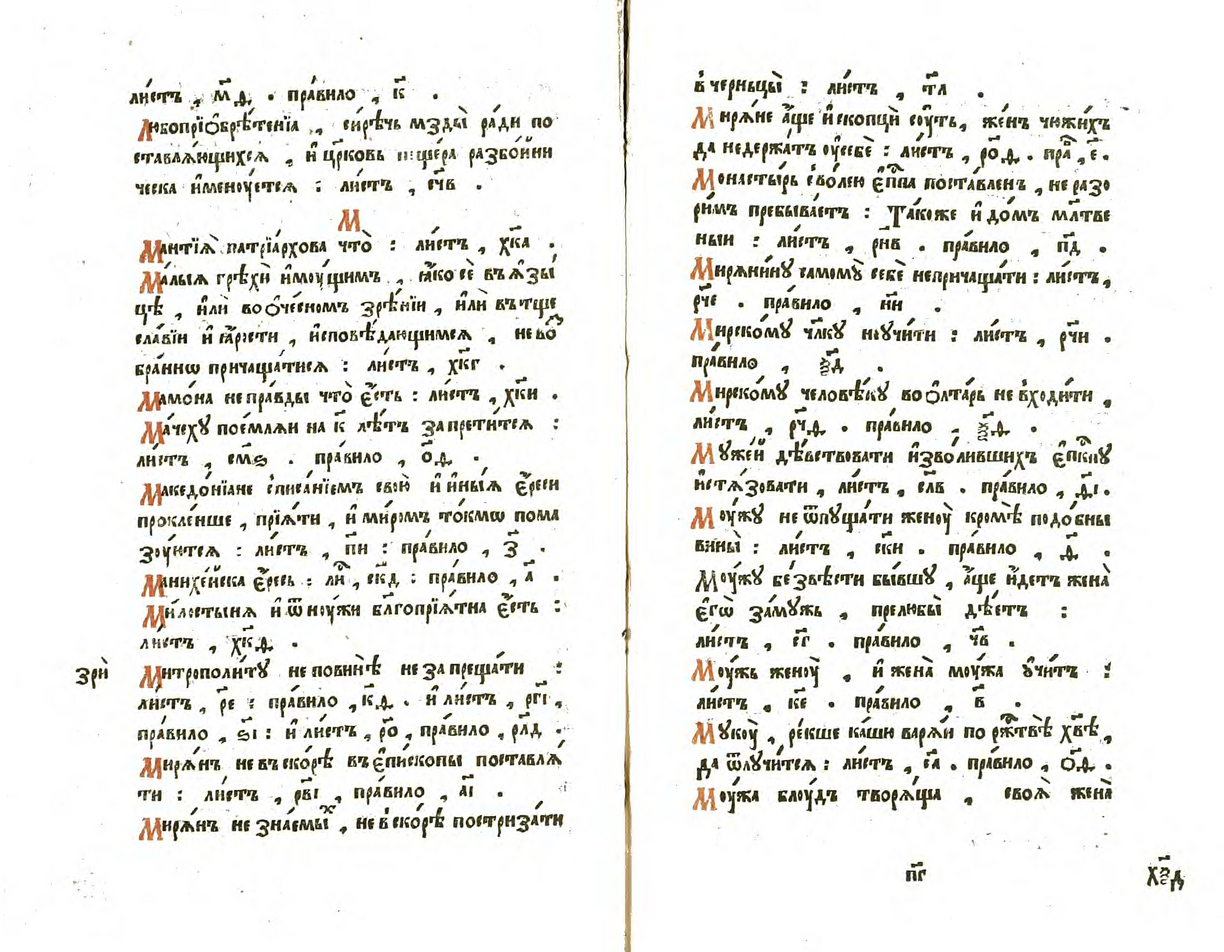 ли́стъ , м҃д . пра́вило , к҃ .
Любопрїѡбрѣ́тенїѧ , си́рѣчь мзды̀ ра́ди по
ставлѧ́ющихсѧ , и҆ цр҃ковь пеще́ра разбо́йни
ческа и҆менꙋ́етсѧ : ли́стъ , с҃чв .
М
Мантїѧ̀ патрїа́рхова что̀ : ли́стъ , х҃ка .
Ма́лыѧ грѣхѝ и҆мꙋ́щимъ , ꙗ҆́ко сѐ въ ѧ҆зы́
цѣ , и҆лѝ во ѻ҆че́сномъ зрѣ́нїи , и҆лѝ въ тще
сла́вїи и҆ ꙗ҆́рости , и҆сповѣ́дающимсѧ , не воз
бра́ннѡ причаща́тисѧ : ли́стъ , х҃кг .
Мамо́на непра́вды что̀ є҆́сть : ли́стъ , х҃ки .
Ма́чехꙋ пое́млѧи на к҃ лѣ́тъ запрети́тсѧ :
ли́стъ , с҃мѕ . пра́вило , ѻ҃д .
Македо́нїане списа́нїемъ свою̀ и҆ и҆ны́ѧ є҆́реси
прокле́нше , прїѧ́ти , и҆ ми́ромъ то́кмѡ пома
зꙋ́итсѧ : ли́стъ , п҃и : пра́вило , з҃ .
Манихе́йска є҆́ресь : ли́ , с҃кд : пра́вило , а҃ .
Ми́лостынѧ и҆ ѿ нꙋ́жи бл҃гопрїѧ́тна є҆́сть :
ли́стъ , х҃кд .
зрѝ
Митрополи́тꙋ не пови́ннѣ не запреща́ти :
ли́стъ , р҃е : пра́вило , к҃д . и҆ ли́стъ , р҃гі ,
пра́вило , ѕ҃і : и҆ ли́стъ , р҃о , пра́вило , р҃лд .
Мирѧ́нъ не въ ско́рѣ въ є҆пи́скопы поставлѧ́
ти : ли́стъ , р҃ві , пра́вило , а҃і .
Мирѧ́нъ незна́емыⷯ , не в ско́рѣ постриза́ти
в черньцы̀ : ли́стъ , т҃л .
Мирѧ́не а҆́ще и҆ скопцы̀ сꙋ́ть , же́нъ чюжи́хъ
да недержа́тъ ᲂу҆себѐ : ли́стъ , р҃о.д . пра́ , є҃ .
Монасты́рь с во́лею є҆п҃па поста́вленъ , не разо
ри́мъ пребыва́етъ : Та́коже и҆ до́мъ мл҃тве
ныи : ли́стъ , р҃нв . пра́вило , п҃д .
Мирѧ́нинꙋ самомꙋ̀ себѐ непричаща́ти : ли́стъ ,
р҃че . пра́вило , н҃и .
Мирско́мꙋ чл҃кꙋ не ᲂу҆чи́ти : ли́стъ , р҃чи .
пра́вило , ѯ҃д .
Мирско́мꙋ человѣ́кꙋ во ѻ҆лта́рь не входи́ти ,
ли́стъ , р҃чд . пра́вило , ѯ҃д .
Мꙋже́й дѣ́вствовати и҆зво́лившихъ є҆п҃кпꙋ
и҆стѧ́зовати , ли́стъ , с҃лв . пра́вило , д҃і .
Моу́жꙋ не ѿпꙋща́ти жены̀ кромѣ̀ подо́бны
вины̀ : ли́стъ , с҃ки . пра́вило , д҃ .
Моу́жꙋ без вѣ́сти бы́вшꙋ , а҆́ще и҆́детъ жена̀
є҆гѡ̀ за́мꙋжь , прелюбы̀ дѣ́етъ :
ли́стъ , с҃г . пра́вило , ч҃в .
Моу́жь женꙋ̀ , и҆ жена̀ мꙋ́жа ᲂу҆чи́тъ :
ли́стъ , к҃є . пра́вило , в҃ .
Мꙋкꙋ̀ , ре́кше ка́ши варѧ́и по рⷤтвѣ̀ хв҃ѣ ,
да ѿлꙋчи́тсѧ : ли́стъ , с҃а . пра́вило , ѻ҃д .
Моу́жа блꙋ́дъ творѧ́ща , своѧ̀ жена̀
п҃г
х҃ѯд